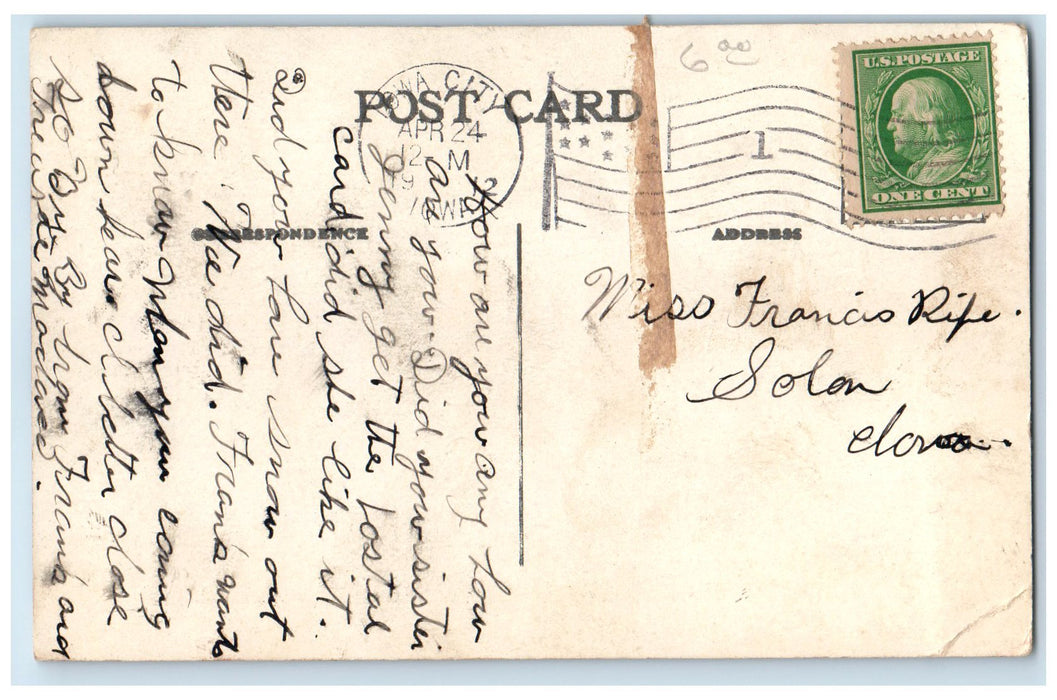 POST CARD
IOWA CITY
APR 24
12 M
IOWA
1
U.S. POSTAGE
ONE CENT
6.00
CORRESPONDENCE
ADDRESS
How are you any how
are you. Did your sister
Jenny get the Postal
card did she like it.
Did you have snow out
Here. We did. Frank wants
to know when you coming
down hear I better close
So Bye By from Frank and
The
Miss Francis Ripe.
Solon
Iowa.